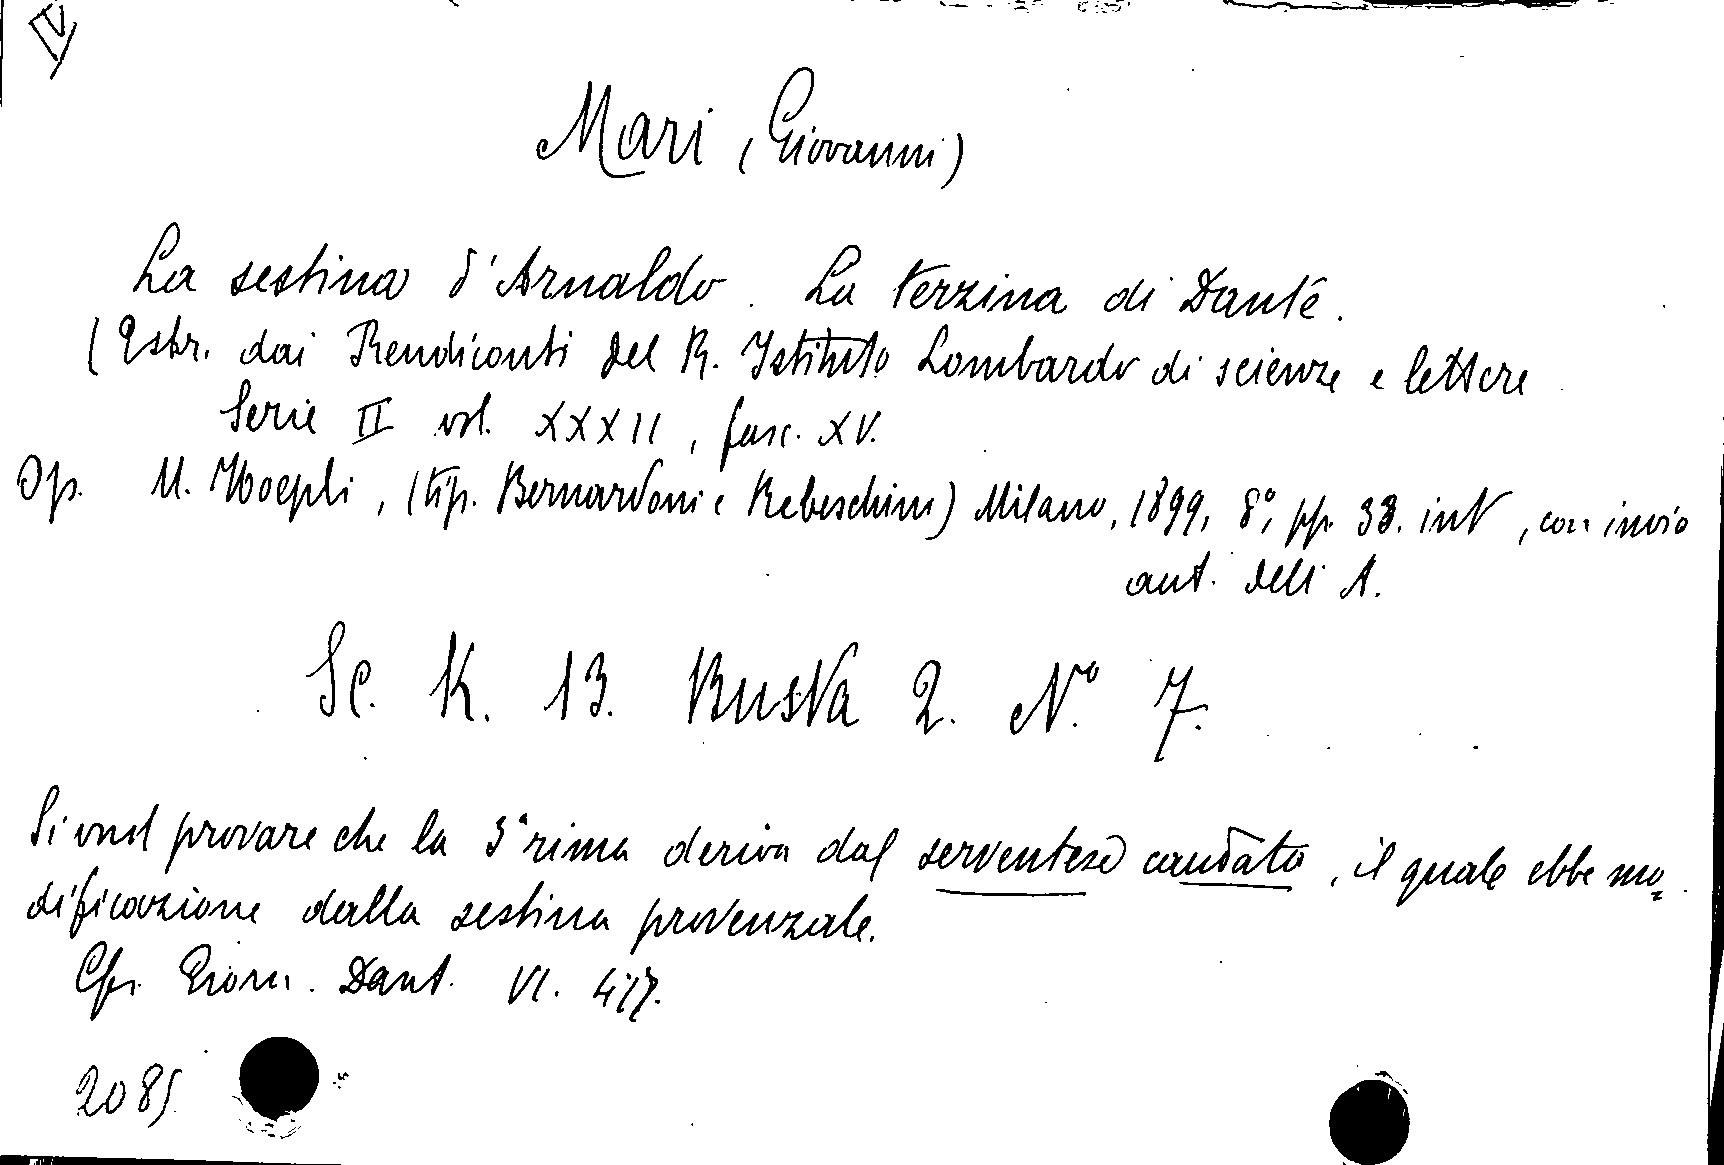 Mari (Giovanni)
La sestina d'Arnaldo. La terzina di Dante.
(Estr. dai Rendiconti del R. Istituto Lombardo di scienze e lettere
Serie II vol. XXXII, fasc. XV.
Op. U. Hoepli, (tip. Bernardoni e Rebeschini) Milano, 1899, 8°, pp. 33. int, con invio
aut. dell A.
Sc. K. 13. Busta 2. N.° 7.
Si vuol provare che la 3ª rima deriva dal serventese caudato, il quale ebbe mo=
dificazione dalla sestina provenzale.
Cfr. Giorn. Dant. VI. 417.
2085